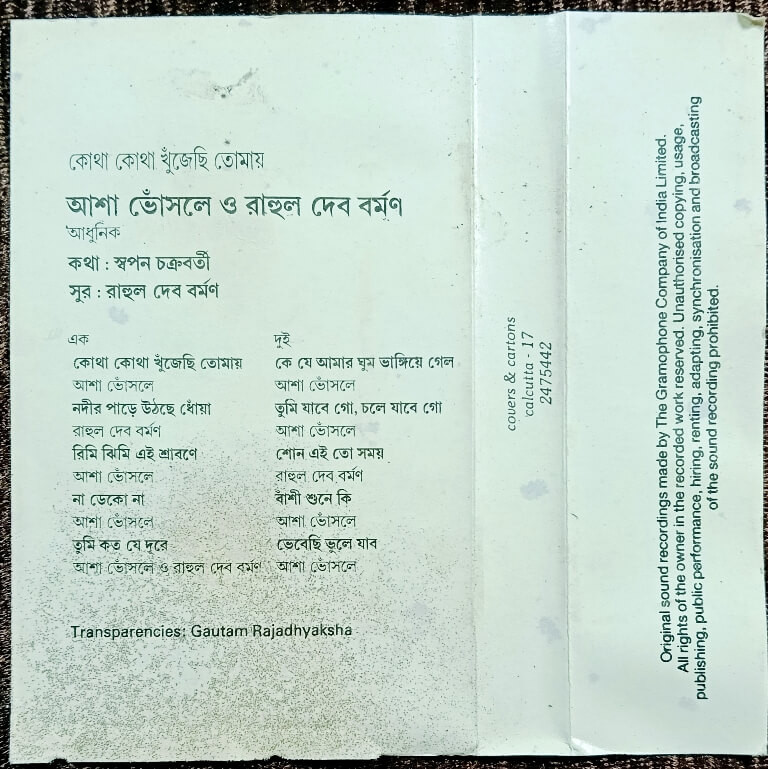 কোথা কোথা খুঁজেছি তোমায়
আশা ভোঁসলে ও রাহুল দেব বর্মণ
আধুনিক
কথা : স্বপন চক্রবর্তী
সুর : রাহুল দেব বর্মণ
এক
কোথা কোথা খুঁজেছি তোমায়
আশা ভোঁসলে
নদীর পাড়ে উঠছে ধোঁয়া
রাহুল দেব বর্মণ
রিমি ঝিমি এই শ্রাবণে
আশা ভোঁসলে
না ডেকো না
আশা ভোঁসলে
তুমি কত যে দূরে
আশা ভোঁসলে ও রাহুল দেব বর্মণ
দুই
কে যে আমার ঘুম ভাঙ্গিয়ে গেল
আশা ভোঁসলে
তুমি যাবে গো, চলে যাবে গো
আশা ভোঁসলে
শোন এই তো সময়
রাহুল দেব বর্মণ
বাঁশী শুনে কি
আশা ভোঁসলে
ভেবেছি ভুলে যাব
আশা ভোঁসলে
Transparencies: Gautam Rajadhyaksha
covers & cartons
calcutta - 17
2475442
Original sound recordings made by The Gramophone Company of India Limited.
All rights of the owner in the recorded work reserved. Unauthorised copying, usage,
publishing, public performance, hiring, renting, adapting, synchronisation and broadcasting
of the sound recording prohibited.